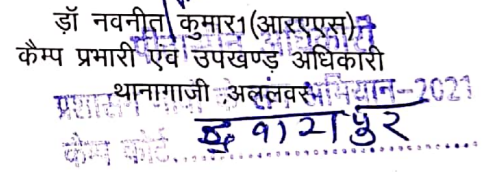 डॉ नवनीत कुमार1(आरएएस)
कैम्प प्रभारी एवं उपखण्ड अधिकारी
थानागाजी अललवर
प्रशासन अभियान-2021
कैम्प कोर्ट